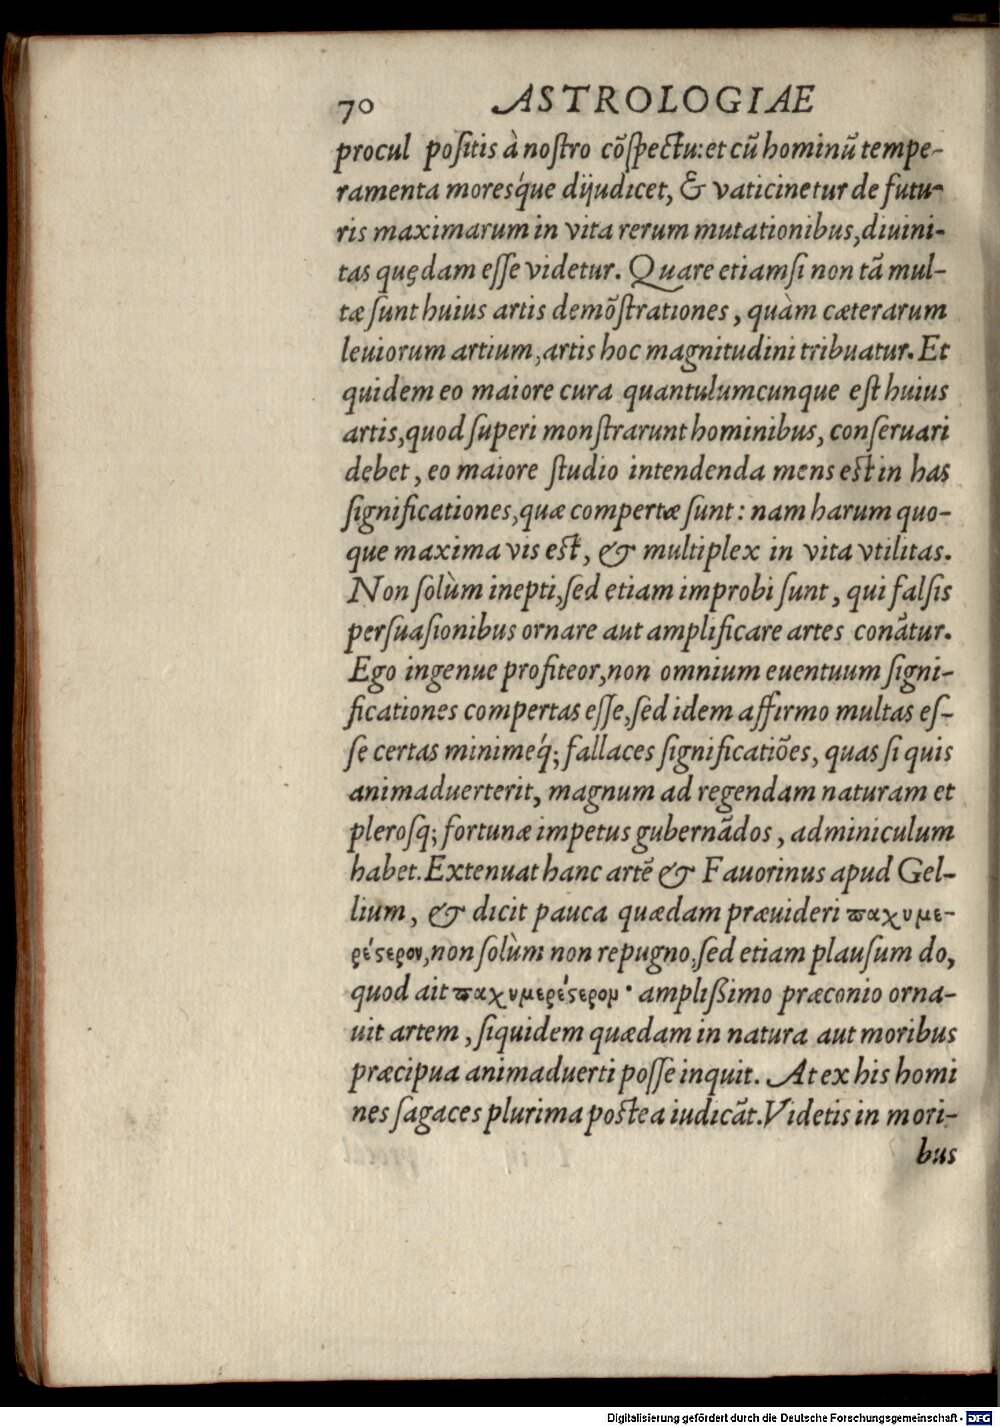 70 ASTROLOGIAE
procul positis à nostro cõspectu: et cũ hominũ tempe-
ramenta moresq́ue dijudicet, & vaticinetur de futu-
ris maximarum in vita rerum mutationibus, diuini-
tas quędam esse videtur. Quare etiamsi non tã mul-
tæ sunt huius artis demõstrationes, quàm cæterarum
leuiorum artium, artis hoc magnitudini tribuatur. Et
quidem eo maiore cura quantulumcunque est huius
artis, quod superi monstrarunt hominibus, conseruari
debet, eo maiore studio intendenda mens est in has
significationes, quæ compertæ sunt: nam harum quo-
que maxima vis est, & multiplex in vita vtilitas.
Non solùm inepti, sed etiam improbi sunt, qui falsis
persuasionibus ornare aut amplificare artes conãtur.
Ego ingenue profiteor, non omnium euentuum signi-
ficationes compertas esse, sed idem affirmo multas es-
se certas minimeq́; fallaces significatiões, quas si quis
animaduerterit, magnum ad regendam naturam et
plerosq; fortunæ impetus gubernãdos, adminiculum
habet. Extenuat hanc artẽ & Fauorinus apud Gel-
lium, & dicit pauca quædam præuideri παχυμε-
ρέςερον, non solùm non repugno, sed etiam plausum do,
quod ait παχυμερέςερομ· amplißimo præconio orna-
uit artem, siquidem quædam in natura aut moribus
præcipua animaduerti posse inquit. At ex his homi
nes sagaces plurima postea iudicãt. Videtis in mori-
bus
Digitalisierung gefördert durch die Deutsche Forschungsgemeinschaft - DFG